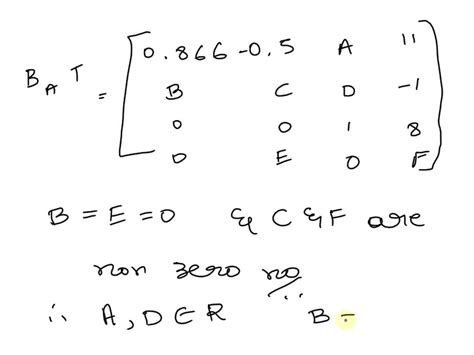 0.866 -0.5 A 11
B A T = B C D -1
0 0 1 8
D E 0 F
B = E = 0 & C & F are
non zero no
∴ A, D ∈ R ∵ B =